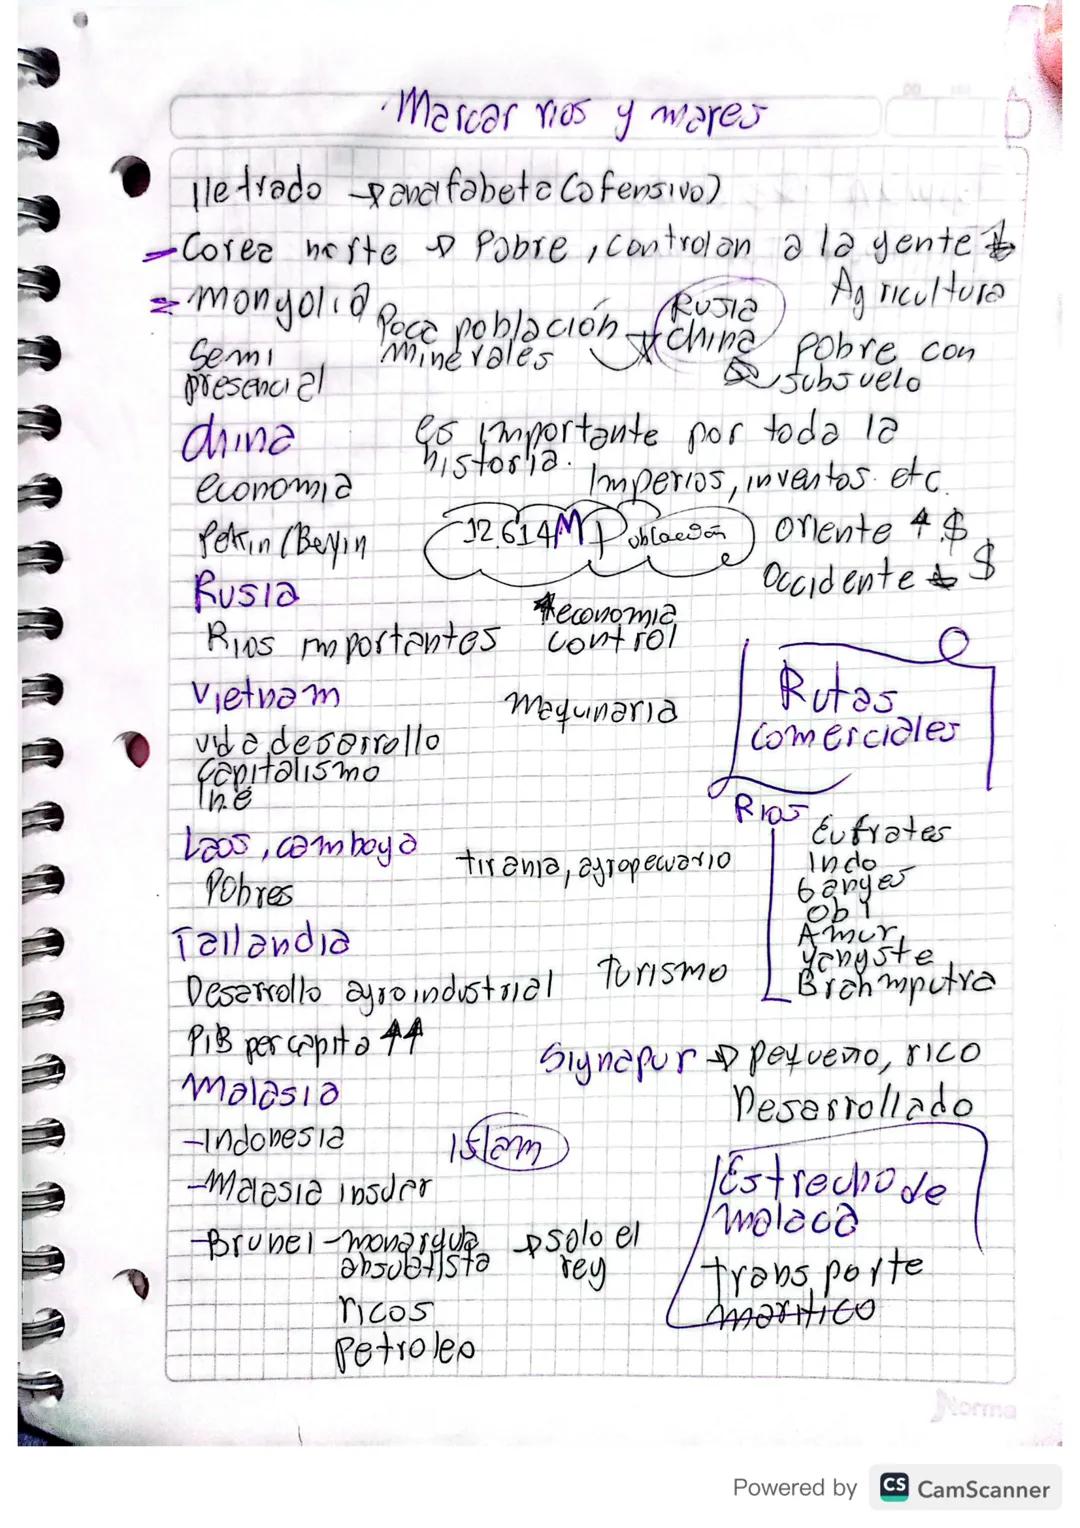 Marcar rios y mares
Iletrado → analfabeta (ofensivo)
- Corea norte → Pobre, controlan a la gente
Agricultura
Mongolia
Poca población
minerales
Rusia
China
Pobre con
subsuelo
Semi
presencial
China
es importante por toda la
historia.
Imperios, inventos. etc.
economia
Pekin (Beyin
12.614M Población
Oriente $
Occidente $
Rusia
economia
control
Rios importantes
Vietnam
Maquinaria
Rutas
comerciales
vida, desarrollo
capitalismo
Rios
Eufrates
Indo
Ganges
Obi
Amur
Yangste
Brahmputra
Laos, camboya
tirania, agropecuario
Pobres
Tailandia
Turismo
Desarrollo agroindustrial
PiB per capita
Signapur → pequeño, rico
Desarrollado
Malasia
- Indonesia
Islam
- Malasia insular
- Brunei - monarquia
absolutista
→ solo el
rey
ricos
Petroleo
Estrecho de
malaca
transporte
Norma
Powered by CS CamScanner